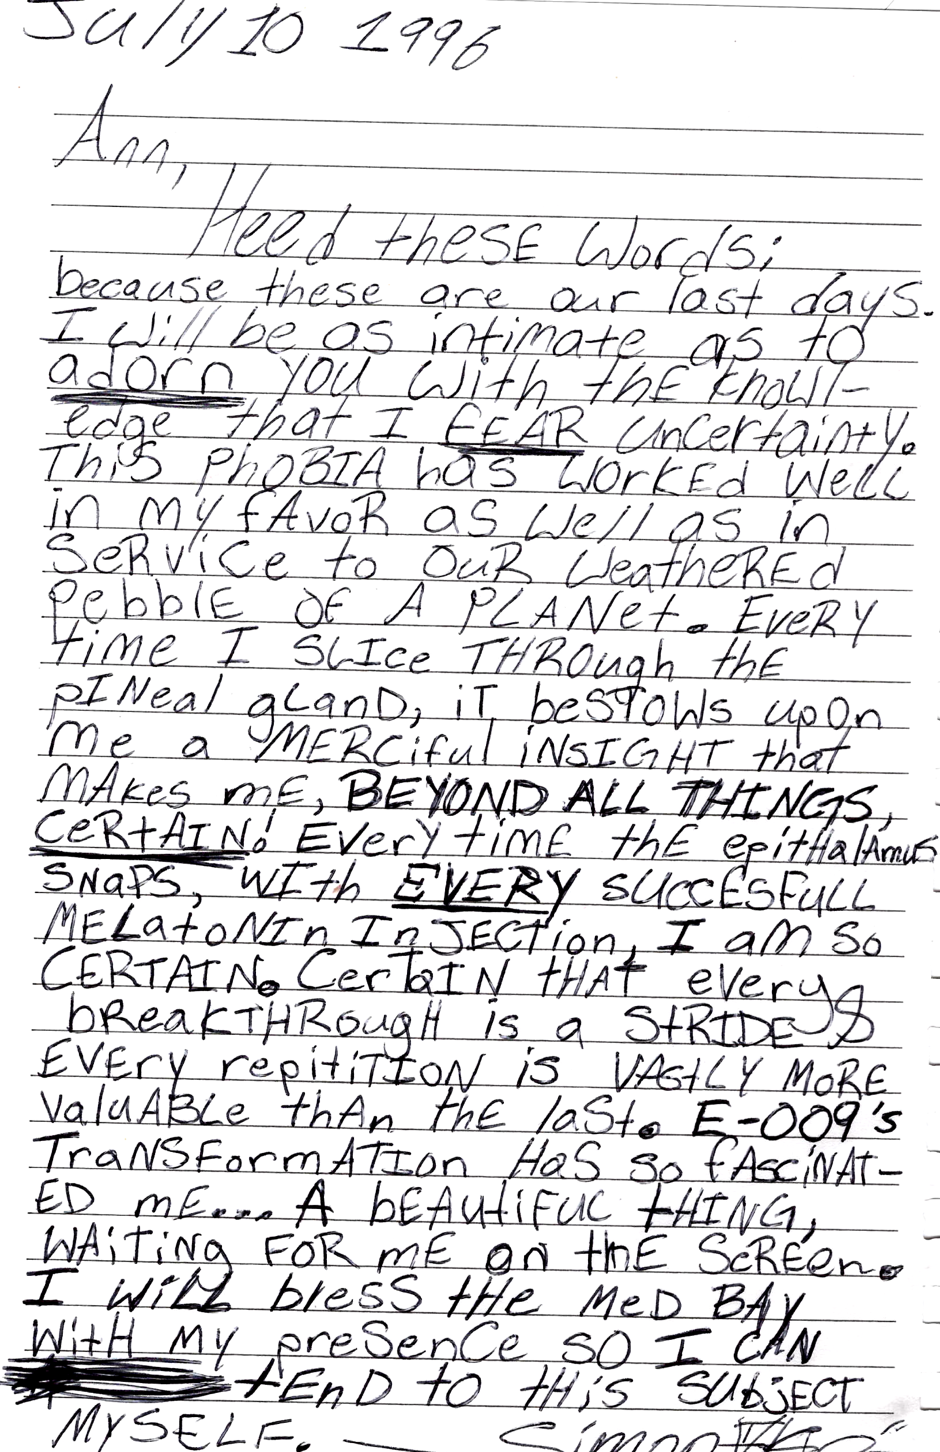 July 10 1996
Ann,
Heed theSE Words;
because these are our last days.
I Will be as intimate as to
adorn you with thE knowl-
edge that I FEAR uncertainty.
This PHOBIA has WorKEd WeLL
in my fAvoR as well as in
SeRviCe to OuR WeatheREd
PebblE OF A PLANet. EveRY
time I SLIce THROugh thE
pINeal gLanD, iT beSTOWs upOn
me a MERCiful iNSIGHT that
MAkes mE, BEYOND ALL THINGS,
CeRtAIN! EVEry timE thE epitHalAmuS
SNaPS, WIth EVERY sUCCESFULL
MELatoNIn InJECTion, I aM so
CERTAIN. CertaIN tHAt every
bReakTHRougH is a StRIDE &
EVEry repitiTION is VAStLY MoRE
ValuABLe thAn thE laSt. E-009's
TraNSFormATIon HaS so fAsciNAT-
ED mE.... A bEAUtiFUL tHING,
WAiTiNg FOR mE on thE ScREen.
I WiLL blesS tHe MeD BAy
WitH My preSenCe SO I CAN
tEnD tO tHiS SUbjECT
MySELF. — Simon